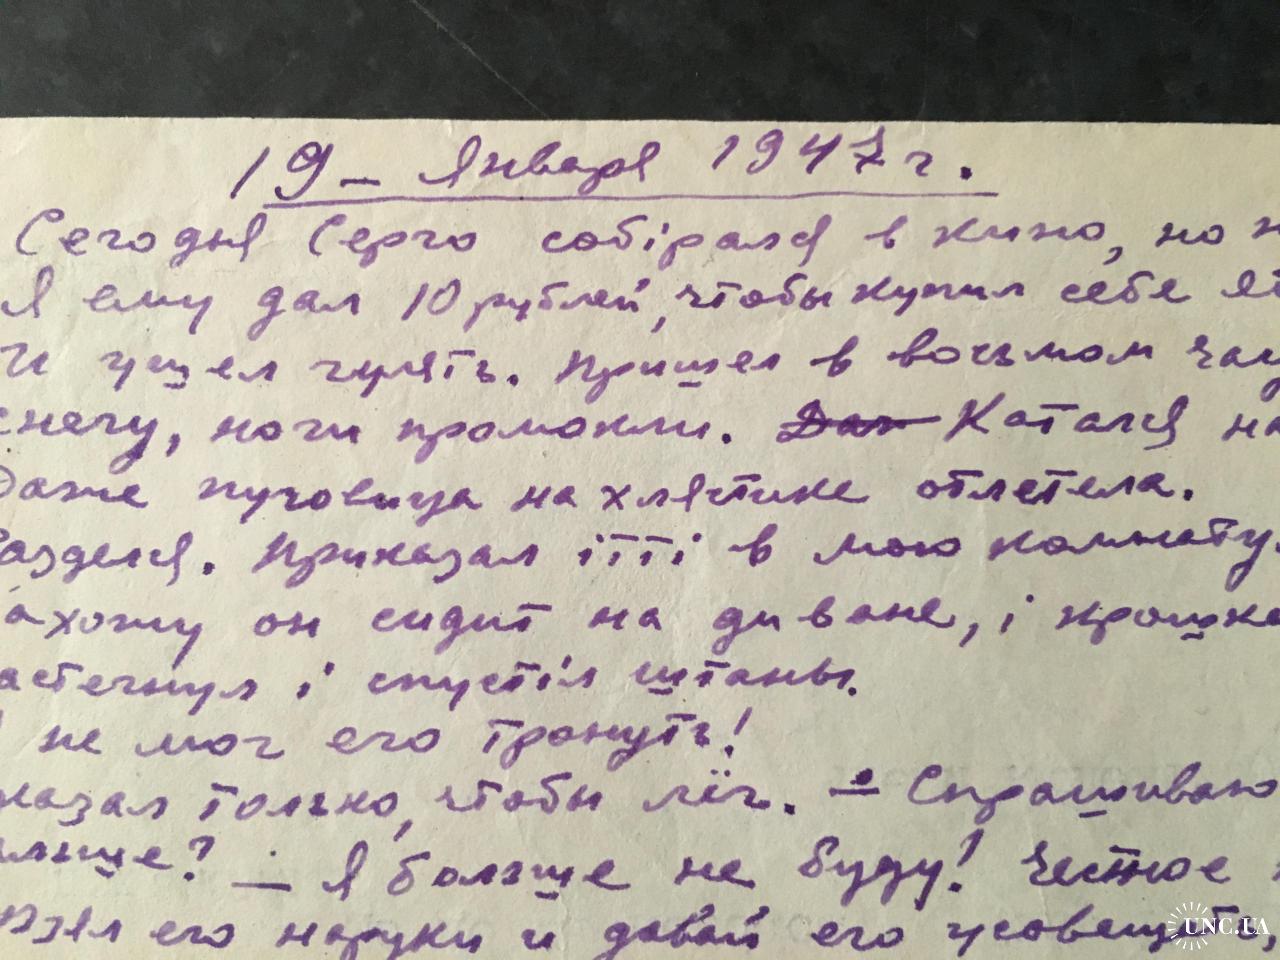 19 - Января 1947 г.
Сегодня Серго собірался в кино, но
Я ему дал 10 рублей, чтобы купил себе
И ушел гулять. Пришел в восьмом
снегу, ноги промокли. Дал Катался на
Даже пуговица на хлястике отлетела.
Разделся. Приказал ітті в мою комнату.
ахожу он сидит на диване, і крошке
астегнул і спустіл штаны.
не мог его тронуть!
казал только, чтобы лёг. – Спрашиваю
? — Я больше не буду! Честное
Взял его наруки и давай его усовещать,
UNC.UA